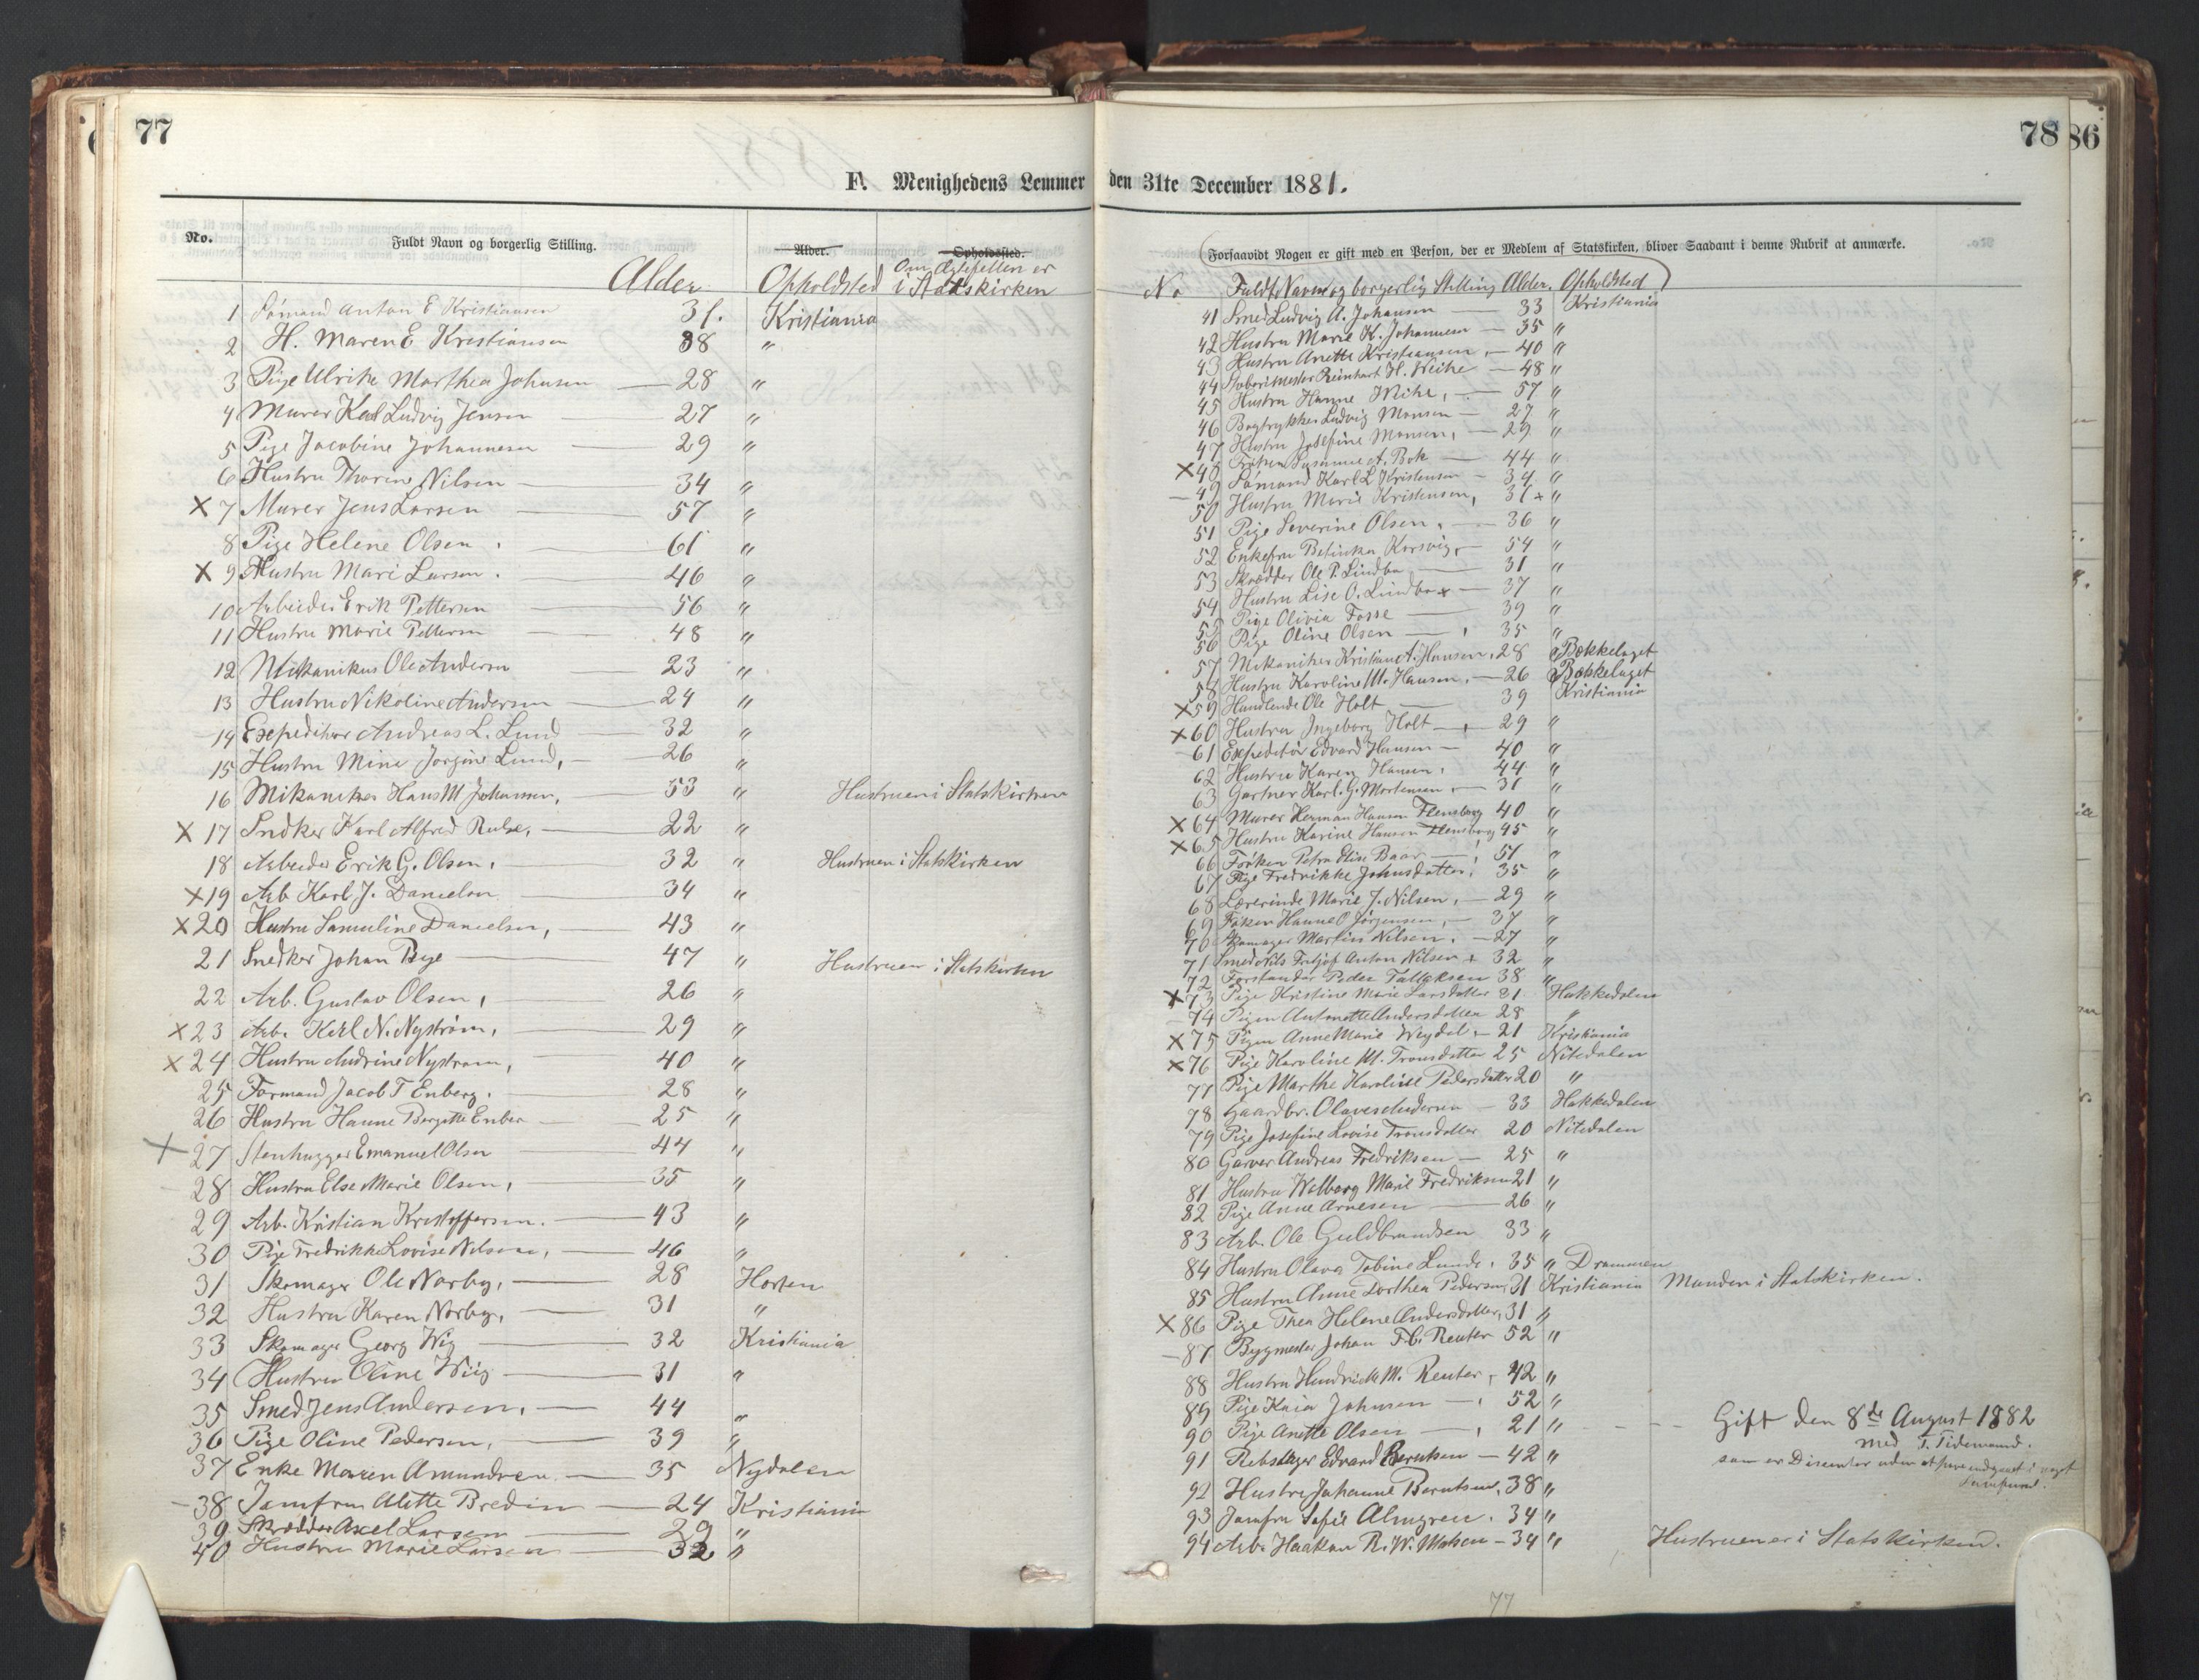 77
F. Menighedens Lemmer
No.
Fuldt Navn og borgerlig Stilling.
Alder.
Opholdssted.
Alder
Opholdsted
Om Ægtefellen er
i Statskirken
1 Sømand Anton E Kristiansen 31. Kristiania
2 H. Maren E Kristiansen 38 "
3 Pige Ulrike Marthea Johnsen 28 "
4 Murer Karl Ludvig Jensen 27 "
5 Pige Jacobine Johannesen 29 "
6 Hustru Thorine Nilsen 34 "
X 7 Murer Jens Larsen 57 "
8 Pige Helene Olsen 61 "
X 9 Hustru Mari Larsen 46 "
10 Arbeider Erik Pettersen 56 "
11 Hustru Marie Pettersen 48 "
12 Mekanikus Ole Andersen 23 "
13 Hustru Nikoline Andersen 24 "
14 Expeditør Andreas L. Lund 32 "
15 Hustru Mine Jørgine Lund, 26 "
16 Mikaniker Hans M Johansen, 53 " Hustruen i Statskirken
X 17 Snedker Karl Alfred 22 "
18 Arbeider Erik G. Olsen, 32 " Hustruen i Statskirken
X 19 Arb Karl J. Danielsen 34 "
X 20 Hustru Samuline Danielsen, 43 "
21 Snedker Johan Bye 47 " Hustruen i Statskirken
22 Arb. Gustav Olsen, 26 "
X 23 Arb. Karl N. Nystrøm, 29 "
X 24 Hustru Andrine Nystrøm, 40 "
25 Formand Jacob T Enberg. 28 "
26 Hustru Hanne Bergitte Enber 25 "
X 27 Stenhugger Emanuel Olsen 44 "
28 Hustru Else Marie Olsen, 35 "
29 Arb. Kristian Kristoffersen. 43 "
30 Pige Fredrikke Lovise Nilsen, 46 "
31 Skomager Ole Norby, 28 Horten
32 Hustru Karen Norby, 31 "
33 Skomager Georg Wiig 32 Kristiania
34 Hustru Oline Wiig 31 "
35 Smed Jens Andersen, 44 "
36 Pige Oline Pedersen, 39 "
37 Enke Maren Amundsen 35 Nydalen
38 Jomfru Alette Bredin 24 Kristiania
39 Skrædder Axel Larsen 29 "
40 Hustru Marie Larsen 32 "
78
86
den 31te December 1881.
Forsaavidt Nogen er gift med en Person, der er Medlem af Statskirken, bliver Saadant i denne Rubrik at anmærke.
No Fuldt Navn og borgerlig Stilling Alder. Opholdsted
41 Smed Ludvig A. Johansen 33 Kristiania
42 Hustru Marie K. Johannesen 35 "
43 Hustru Anette Kristiansen, 40 "
44 Reinhart H. 48 "
45 Hustru Hanne 57 "
46 Bogtrykker Ludvig Monsen 27 "
47 Hustru Josefine Monsen, 29 "
X 48 Frøken A. Bok 44 "
49 Sømand Karl L Kristensen 34 "
50 Hustru Marie Kristensen, 31 "
51 Pige Severine Olsen, 36 "
52 Enkefru Betinka Korsvig, 54 "
53 Skrædder Ole P. Lindbo 31 "
54 Hustru Lise O. Lindbo 37 "
55 Pige Olivia Fosse 39 "
56 Pige Oline Olsen 35 "
57 Mekaniker Kristian A. Hansen, 28 Bækkelaget
58 Hustru Karoline M. Hansen, 26 Bækkelaget
X 59 Handlende Ole Holt 39 Kristiania
X 60 Hustru Ingeborg Holt 29 "
61 Expeditør Edvard Hansen 40 "
62 Hustru Karen Hansen, 44 "
63 Gartner Karl. G. Mortensen, 31 "
X 64 Murer Herman Hansen Flensborg 40 "
X 65 Hustru Karine Hansen Flensborg 45 "
66 Frøken Petra Elise Baar 51 "
67 Pige Fredrikke Johnsdatter, 35 "
68 Lærerinde Marie J. Nilsen, 29 "
69 Frøken Hanne O Jørgensen, 37 "
70 Skomager Martin Nilsen, 27 "
71 Smed Nils Fritjof Anton Nilsen 32 "
72 Forstander Peder Tallaksen 38 "
X 73 Pige Kristine Marie Larsdatter 21 Hakkedalen
74 Pigen Antonette Andersdatter 28 "
X 75 Pigen Anne Marie Weydal, 21 Kristiania
X 76 Pige Karoline M. Tronsdatter 25 Nitedalen
77 Pige Marthe Karoline Pedersdatter 20 "
78 Gaardbr. Olaves Andersen 33 Hakkedalen
79 Pige Josefine Lovise Tronsdatter 20 Nitedalen
80 Garver Andreas Fredriksen 25 "
81 Hustru Walborg Marie Fredriksen 21 "
82 Pige Anne Arnesen 26 "
83 Arb. Ole Guldbrandsen 33 "
84 Hustru Olava Tobine Lunde, 35 " Drammen
85 Hustru Anne Dorthea Pedersen, 31 Kristiania Manden i Statskirken.
X 86 Pige Thea Helene Andersdatter, 31 "
87 Bygmester Johan Reuter 52 "
88 Hustru M. Reuter, 42 "
89 Pige Kaia Johnsen 52 "
90 Pige Anette Olsen 21 " Gift den 8de August 1882
med T. Tidemand.
som er Dissenter uden at have indgaaet i noget
Samfund.
91 Rebslager Edvard Berntsen 42 "
92 Hustru Johanne Berntsen, 38 "
93 Jomfru Sofie Almgren. 34 "
94 Arb. Haakon R. W. Matsen 34 " Hustruen er i Statskirken.
77